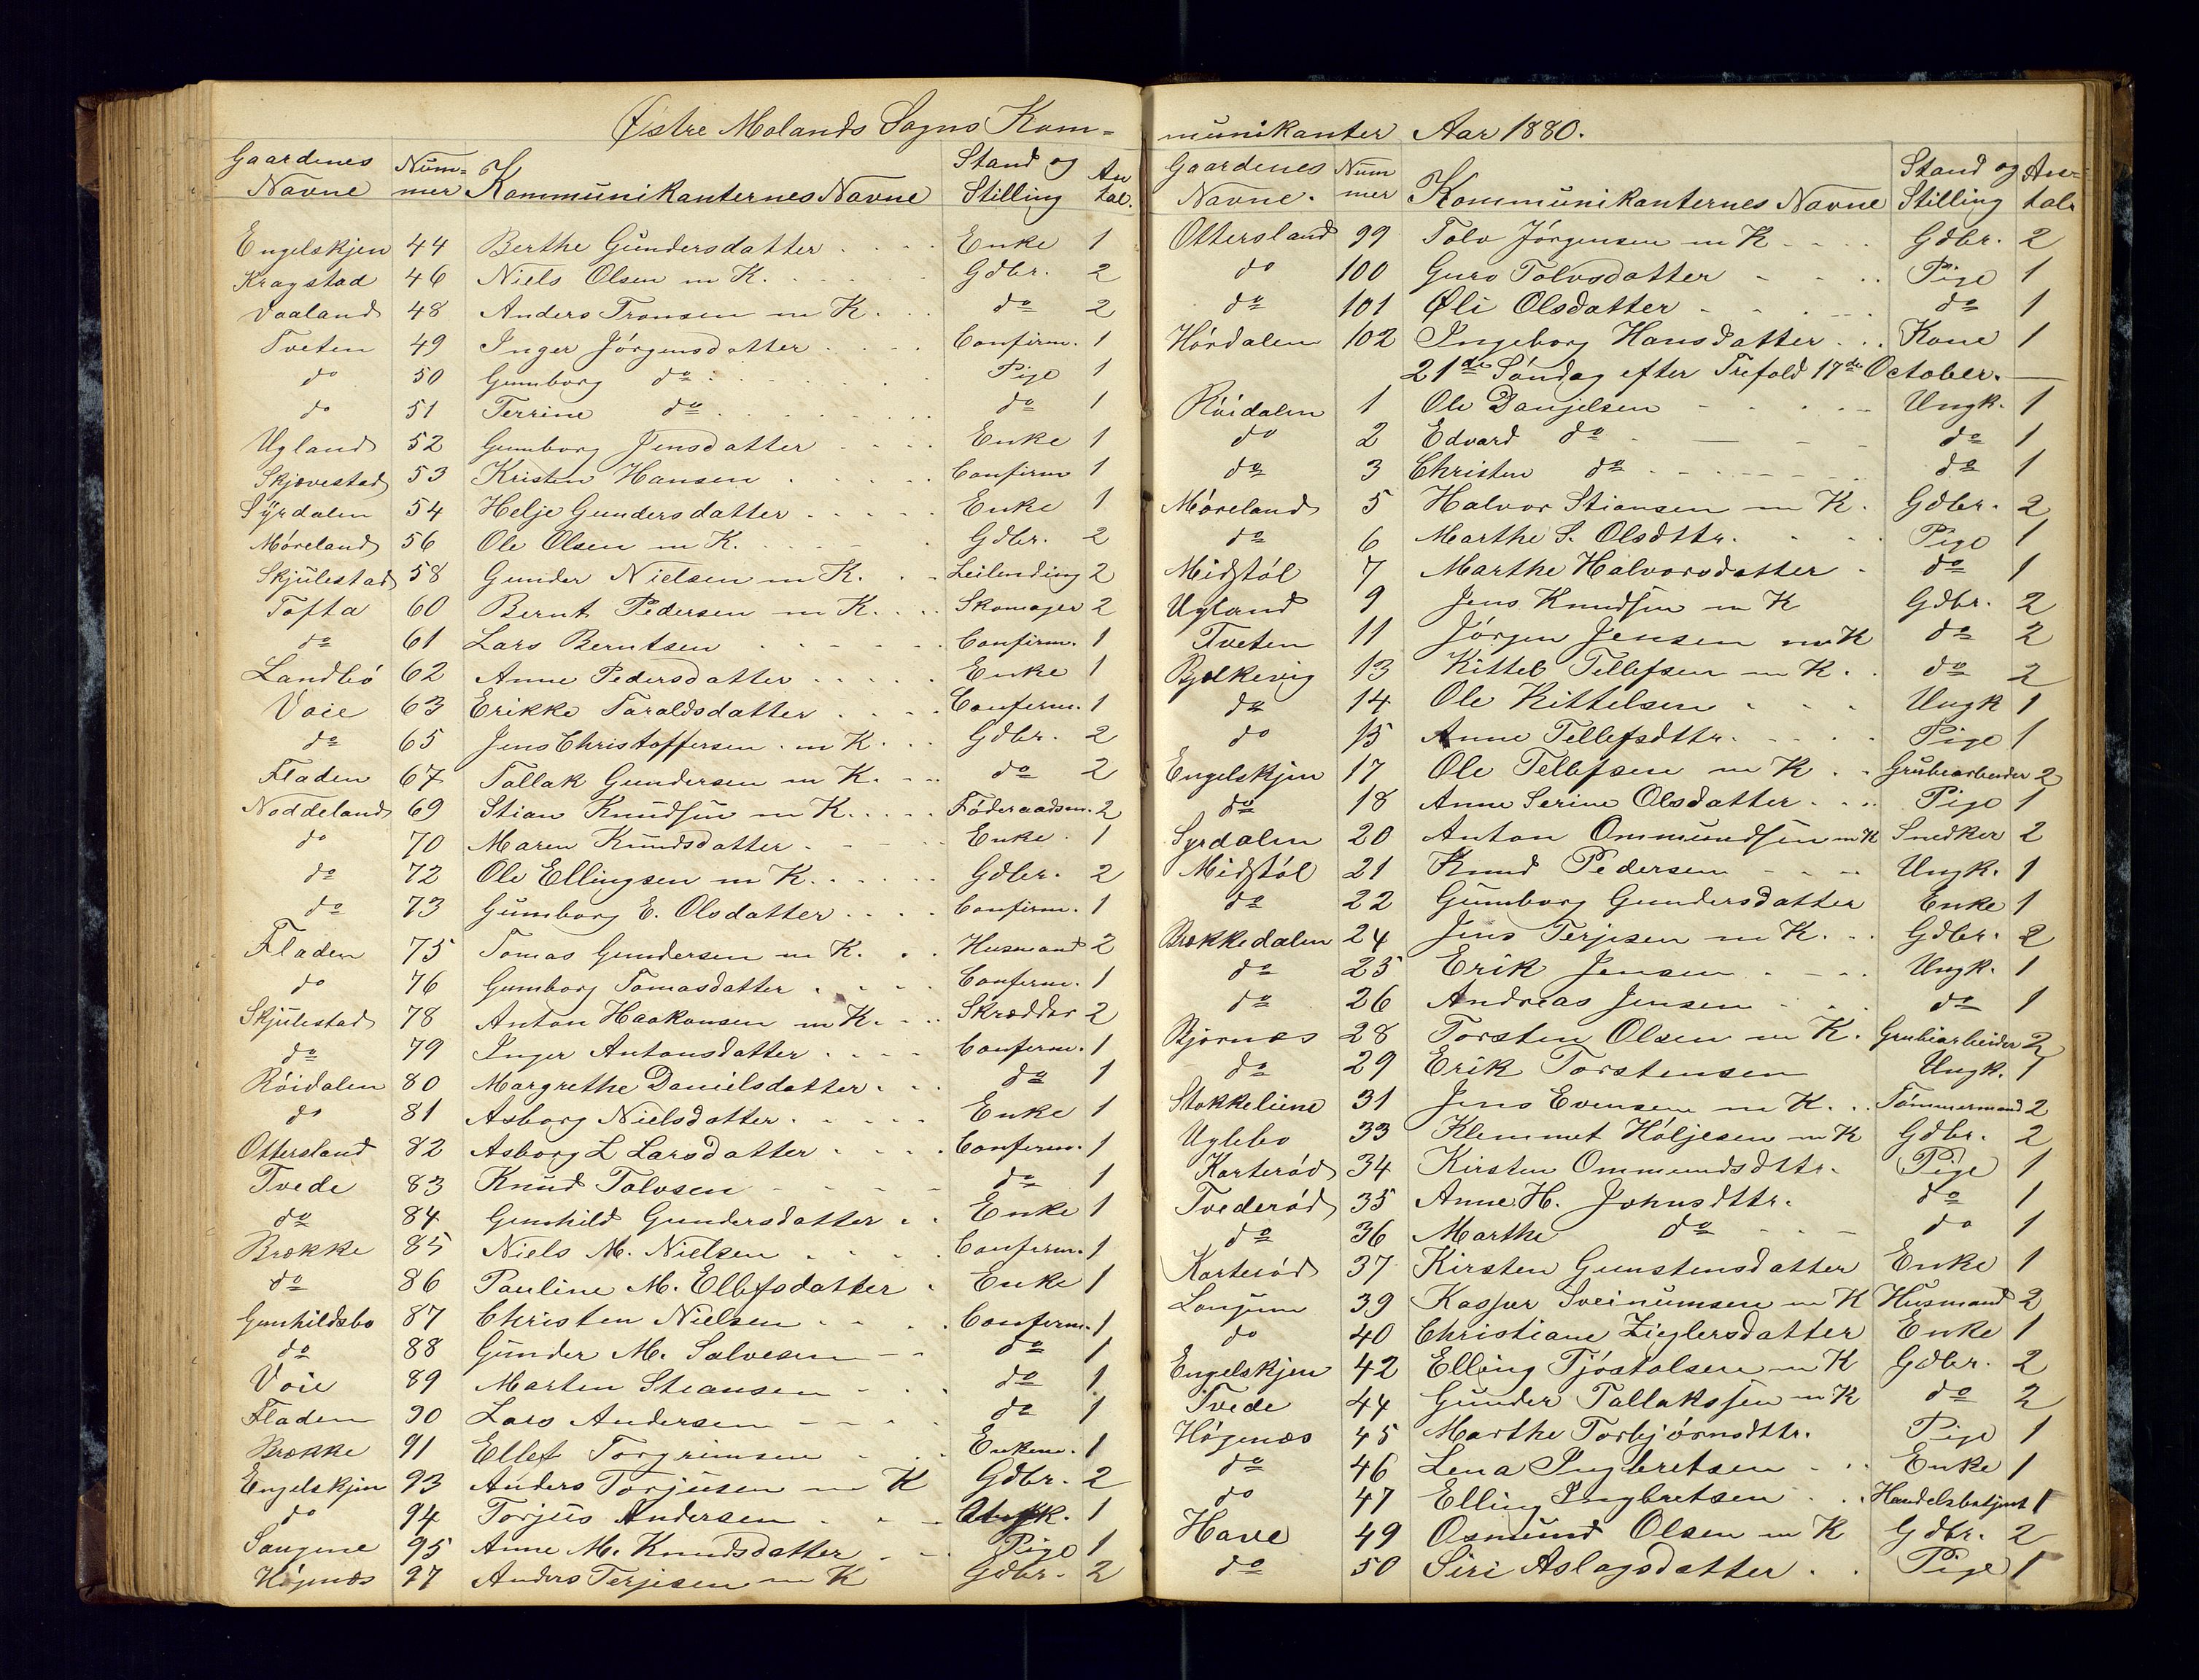 Østre Molands Sogns Kom=
Gaardenes Navne Num=mer Kommunikanternes Navne Stand og Stilling Antal.
Engelskjen 44 Berthe Gundersdatter Enke 1
Kragstad 46 Niels Olsen m K. Gdbr. 2
Vaaland 48 Anders Tronsen m K. do 2
Tveten 49 Inger Jörgensdatter Confirm. 1
do 50 Gumborg do Pige 1
do 51 Terrine do do 1
Ugland 52 Gumborg Jensdatter Enke 1
Skjævestad 53 Kristen Hansen Confirm 1
Syrdalen 54 Helje Gundersdatter Enke 1
Möreland 56 Ole Olsen m K. Gdbr. 2
Skjulestad 58 Gunder Nielsen m K. Leilending 2
Tofta 60 Bernt Pedersen m K. Skomager 2
do 61 Lars Berntsen Confirm. 1
Landbö 62 Anne Pedersdatter Enke 1
Voie 63 Erikke Taraldsdatter Conferm. 1
do 65 Jens Christoffersen m K. Gdbr. 2
Fladen 67 Tallak Gundersen m K. do 2
Noddeland 69 Stian Knudsen m K. Föderaadsm. 2
do 70 Maren Knudsdatter Enke 1
do 72 Ole Ellingsen m K. Gdbr. 2
do 73 Gumborg E. Olsdatter Confirm. 1
Fladen 75 Tomas Gundersen m K. Husmand 2
do 76 Gumborg Tomasdatter Conferm. 1
Skjulestad 78 Anton Haakonsen m K. Skrædder 2
do 79 Inger Antonsdatter Conferm. 1
Röidalen 80 Margrethe Danielsdatter do 1
do 81 Asborg Nielsdatter Enke 1
Ottersland 82 Asborg L Larsdatter Conferm. 1
Tvede 83 Knud Tolvsen do 1
do 84 Gunhild Gundersdatter Enke 1
Brække 85 Niels M. Nielsen Conferm. 1
do 86 Pauline M. Ellefsdatter Enke 1
Gunhildsbo 87 Christen Nielsen Conferm. 1
do 88 Gunder M. Salvesen do 1
Voie 89 Marten Steansen do 1
Fladen 90 Lars Andersen do 1
Brække 91 Ellef Torgrimsen Enkem. 1
Engelskjen 93 Anders Torjusen m K Gdbr. 2
do 94 Torjus Andersen Ungk. 1
Saugene 95 Anne M. Knudsdatter Pige 1
Högnæs 97 Anders Terjesen m K Gdbr. 2
munikanter Aar 1880.
Gaardenes Navne. Num mer Kommunikanternes Navne Stand og Stilling An=tal.
Ottersland 99 Tolv Jörgensen m K Gdbr. 2
do 100 Guro Tolvsdatter Pige 1
do 101 Øli Olsdatter do 1
Hördalen 102 Ingeborg Hansdatter Kone 1
21de Söndag efter Trefold 17de October.
Röidalen 1 Ole Danjelsen Ungk. 1
do 2 Edvard do do 1
do 3 Christen do do 1
Möreland 5 Halvor Stiansen m K. Gdbr. 2
do 6 Marthe S. Olsdttr. Pige 1
Midstöl 7 Marthe Halvorsdatter do 1
Ugland 9 Jens Knudsen m K Gdbr. 2
Tveten 11 Jörgen Jensen m K do 2
Bjelkevig 13 Kittel Tellefsen m K. do 2
do 14 Ole Kittelsen Ungk 1
do 15 Anne Tellefsdttr. Pige 1
Engelskjen 17 Ole Tellefsen m K Grubearbeider 2
do 18 Anne Serine Olsdatter Pige 1
Syrdalen 20 Anton Ommundsen m K Snedker 2
Midstöl 21 Knud Pedersen Ungk. 1
do 22 Gumborg Gundersdatter Enke 1
Brækkedalen 24 Jens Terjesen m K. Gdbr. 2
do 25 Erik Jensen Ungk. 1
do 26 Andreas Jensen do 1
Bjornæs 28 Torsten Olsen m K. Grubearbeider 2
do 29 Erik Torstensen Ungk. 1
Stokkeliene 31 Jens Evensen m K. Tömmermand 2
Uglebo 33 Klemmet Höljesen m K Gdbr. 2
Karteröd 34 Kirsten Ommundsdttr. Pige 1
Tvederöd 35 Anne H. Johnsdttr. do 1
do 36 Marthe do do 1
Karteröd 37 Kirsten Gunstensdatter Enke 1
Longum 39 Kasper Sveinumsen m K Husmand 2
do 40 Christiane Zieglersdatter Enke 1
Engelskjen 42 Elling Tjöstolsen m K Gdbr. 2
Tvede 44 Gunder Tallaksen m K do 2
Högenæs 45 Marthe Torbjörnsdttr. Pige 1
do 46 Lena Ingbretsen Enke 1
do 47 Elling Ingbretsen Handelsbetjent 1
Have 49 Osmund Olsen m K Gdbr. 2
do 50 Siri Aslagsdatter Pige 1